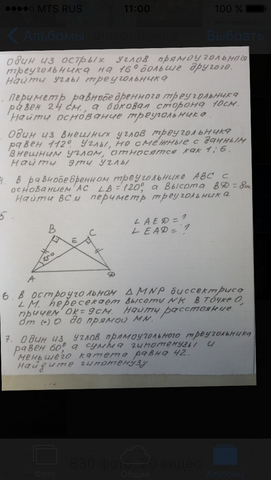 MTS RUS 11:00 100 %
Альбомы Выбрать
Один из острых углов прямоугольного
треугольника на 16° больше другого.
Найти углы треугольника
Периметр равнобедренного треугольника
равен 24 см, а боковая сторона 10см.
Найти основание треугольника
Один из внешних углов треугольника
равен 112° углы, не смежные с данным
внешним углом, относятся как 1:6.
Найти эти углы
В равнобедренном треугольнике ABC с
основанием AC ∠B=120°, а высота BD=8см
Найти BC и периметр треугольника
5.
∠AED=?
∠EAD=?
B C
E
A D
6. В остроугольном △MNP биссектриса
∠M пересекает высоту NK в точке O,
причем OK=9см. Найти расстояние
от (·) O до прямой MN.
7. Один из углов прямоугольного треугольника
равен 60°, а сумма гипотенузы и
меньшего катета равна 42.
Найдите гипотенузу